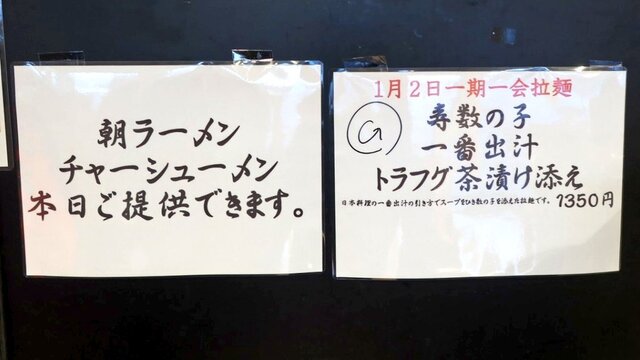 朝ラーメン
チャーシューメン
本日ご提供できます。
1月2日一期一会拉麺
G
寿数の子
一番出汁
トラフグ茶漬け添え
日本料理の一番出汁の引き方でスープをひき数の子を添えた拉麺です。 1350円